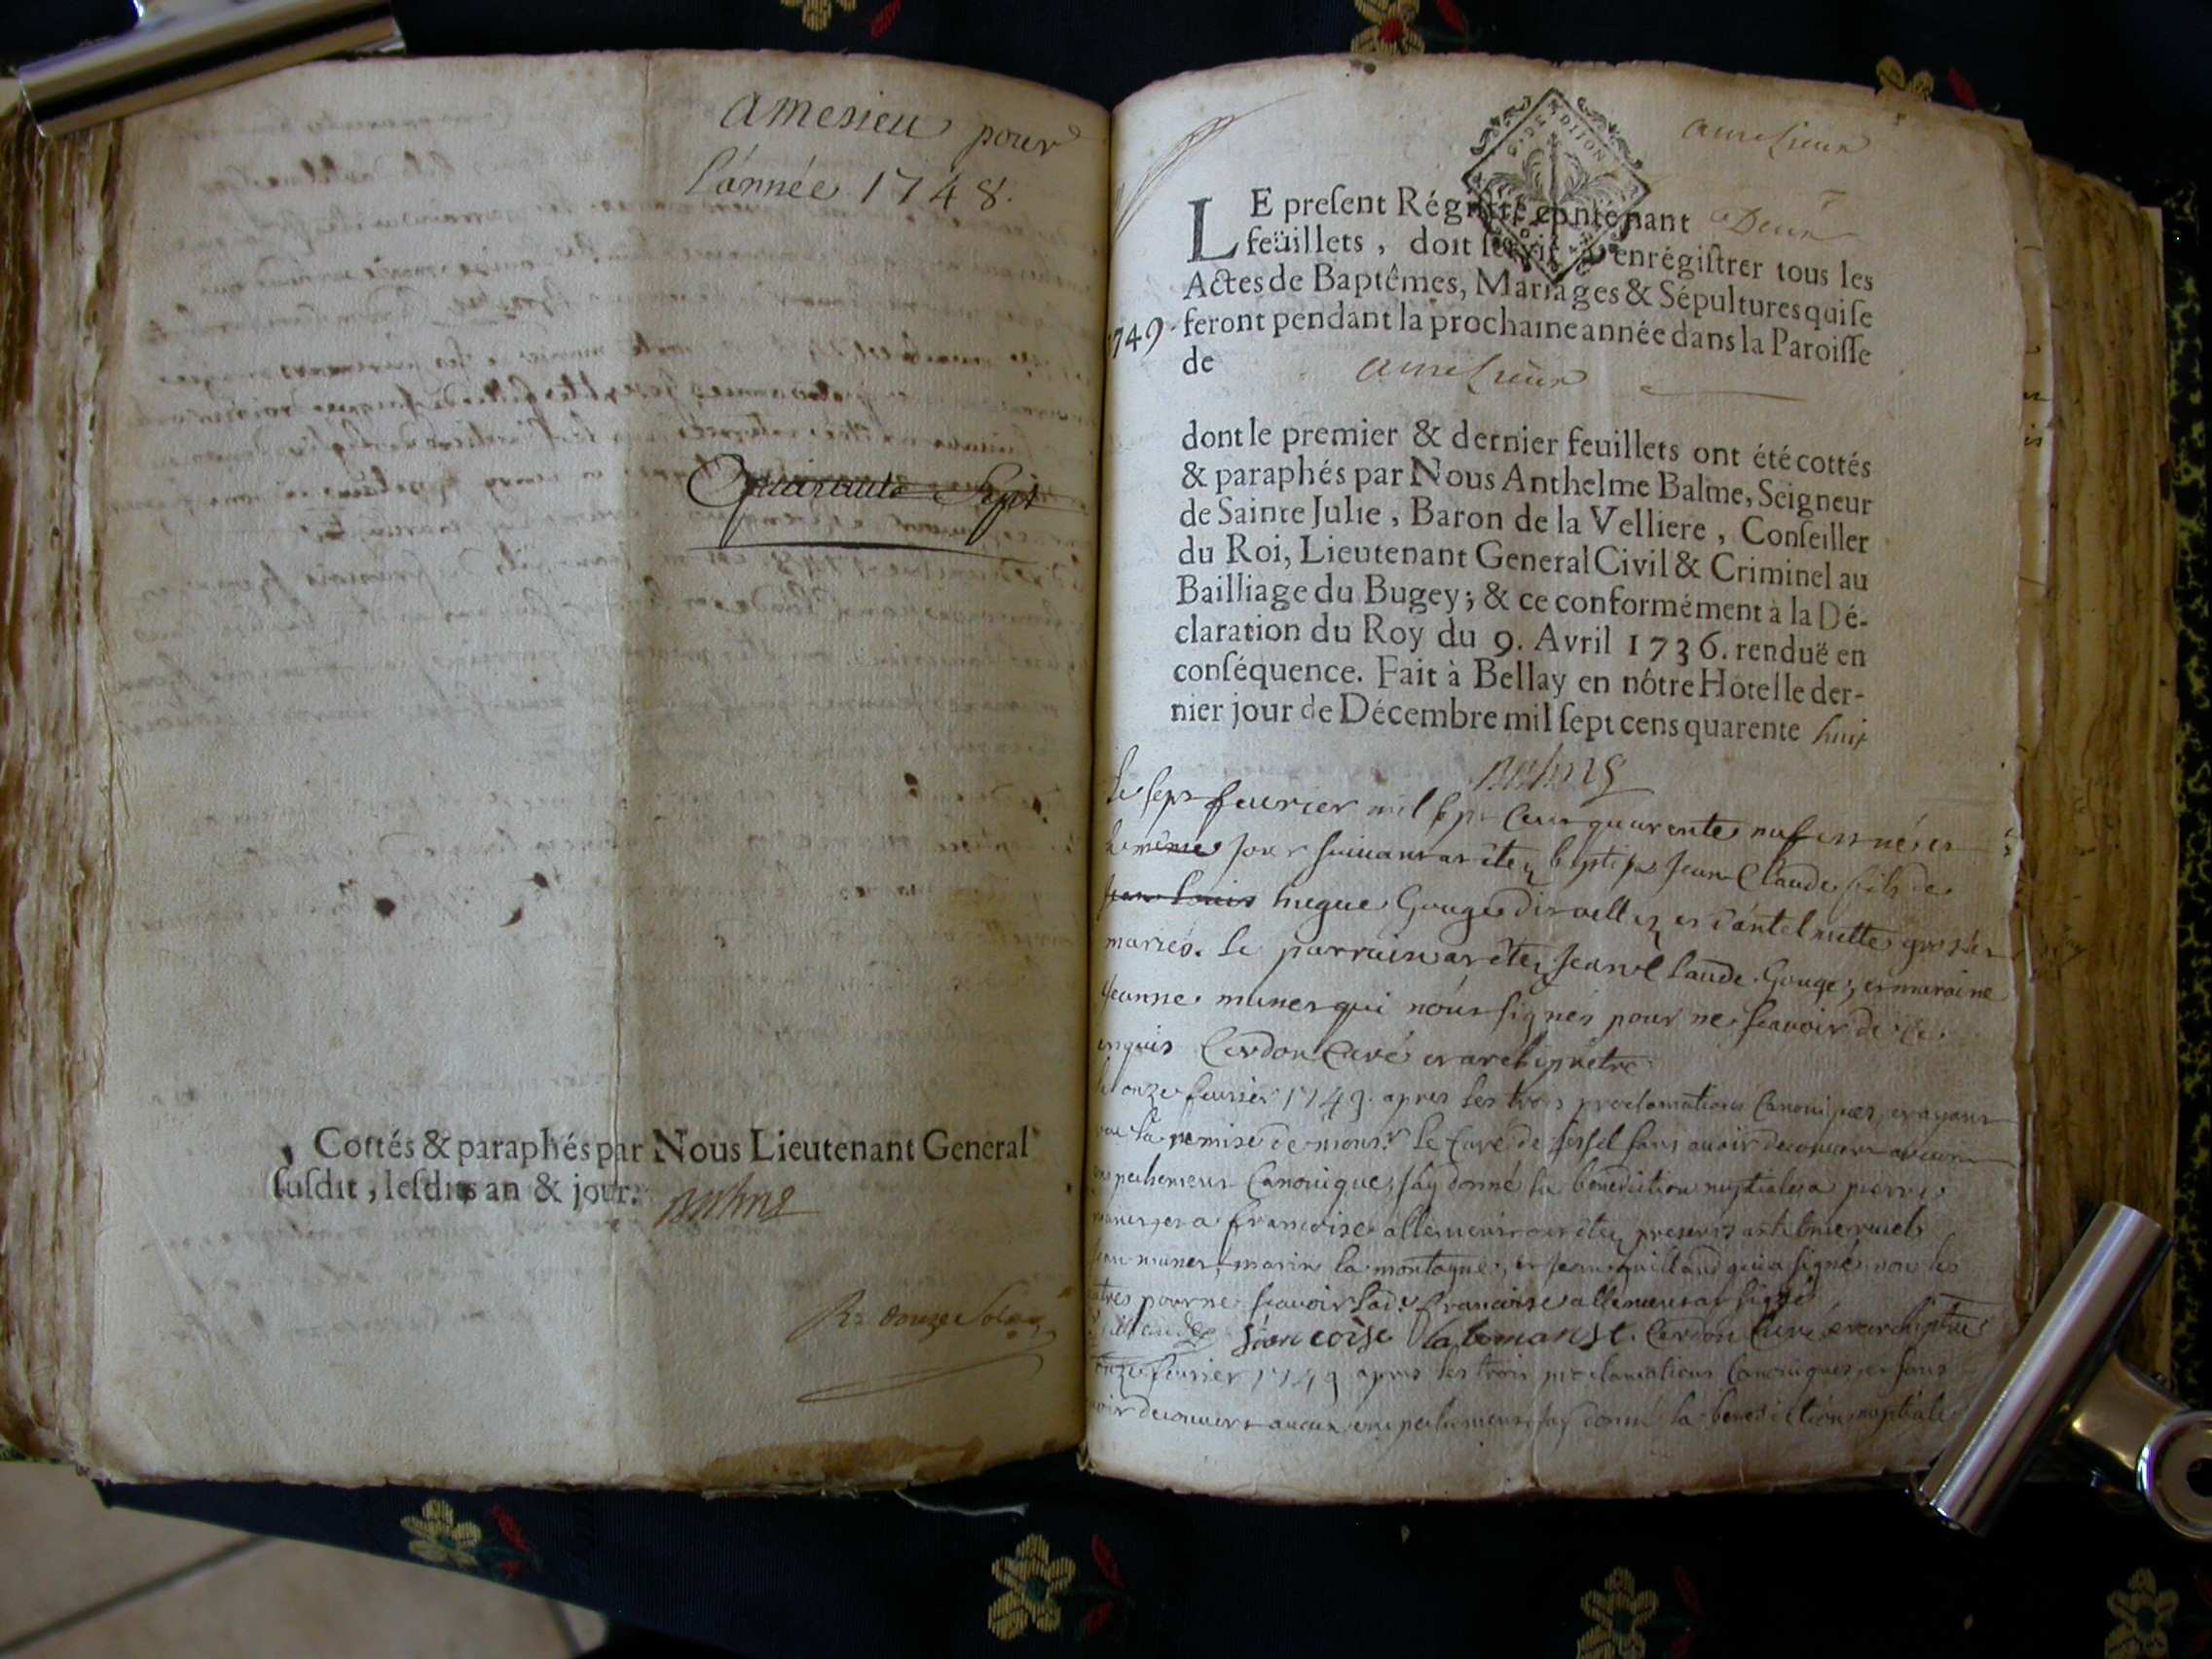 amesieu pour
l'année 1748.
Quarante Sept
Cottés & paraphés par Nous Lieutenant General
susdit, lesdits an & jour.
G. DE DIJON
1749
LE preſent Régiſtre contenant Deux
feüillets, doit ſervir à enrégiſtrer tous les
Actes de Baptêmes, Mariages & Sépultures qui ſe
feront pendant la prochaine année dans la Paroiſſe
de
dont le premier & dernier feuillets ont été cottés
& paraphés par Nous Anthelme Balme, Seigneur
de Sainte Julie, Baron de la Velliere, Conſeiller
du Roi, Lieutenant General Civil & Criminel au
Bailliage du Bugey; & ce conformément à la Dé-
claration du Roy du 9. Avril 1736. renduë en
conſéquence. Fait à Bellay en nôtre Hotel le der-
nier jour de Décembre mil ſept cens quarente huit
le sept feurier mil sept cens quarente neuf est né et
le même jour suiuant a eté baptisé Jean Claude fils de
Jean Louis hugue Gouge dit et d'antelmette
mariés. le parrain a eté Jean Claude Gouge, et maraine
Jeanne munet qui n'ont signés pour ne scavoir de ce
enquis Cerdon Curé et archiprêtre
le onze feurier 1749. apres les trois proclamations Canoniques, et ayant
veu la remise de mons.r le Curé de seissel sans auoir decouuert aucun
empechement Canonique, j'ay donné la benediction nuptiale a pierre
munet, et a francoise allemant ont eté presents
jean munet, marin la montagne, et jean guilland qui a signé non les
autres pour ne scauoir lad.e francoise allemant a signé
francoise Cerdon Curé et archiprêtre
onze feurier 1749 apres les trois proclamations Canoniques, et sans
auoir decouuert aucun empechement j'ay donné la benediction nuptiale